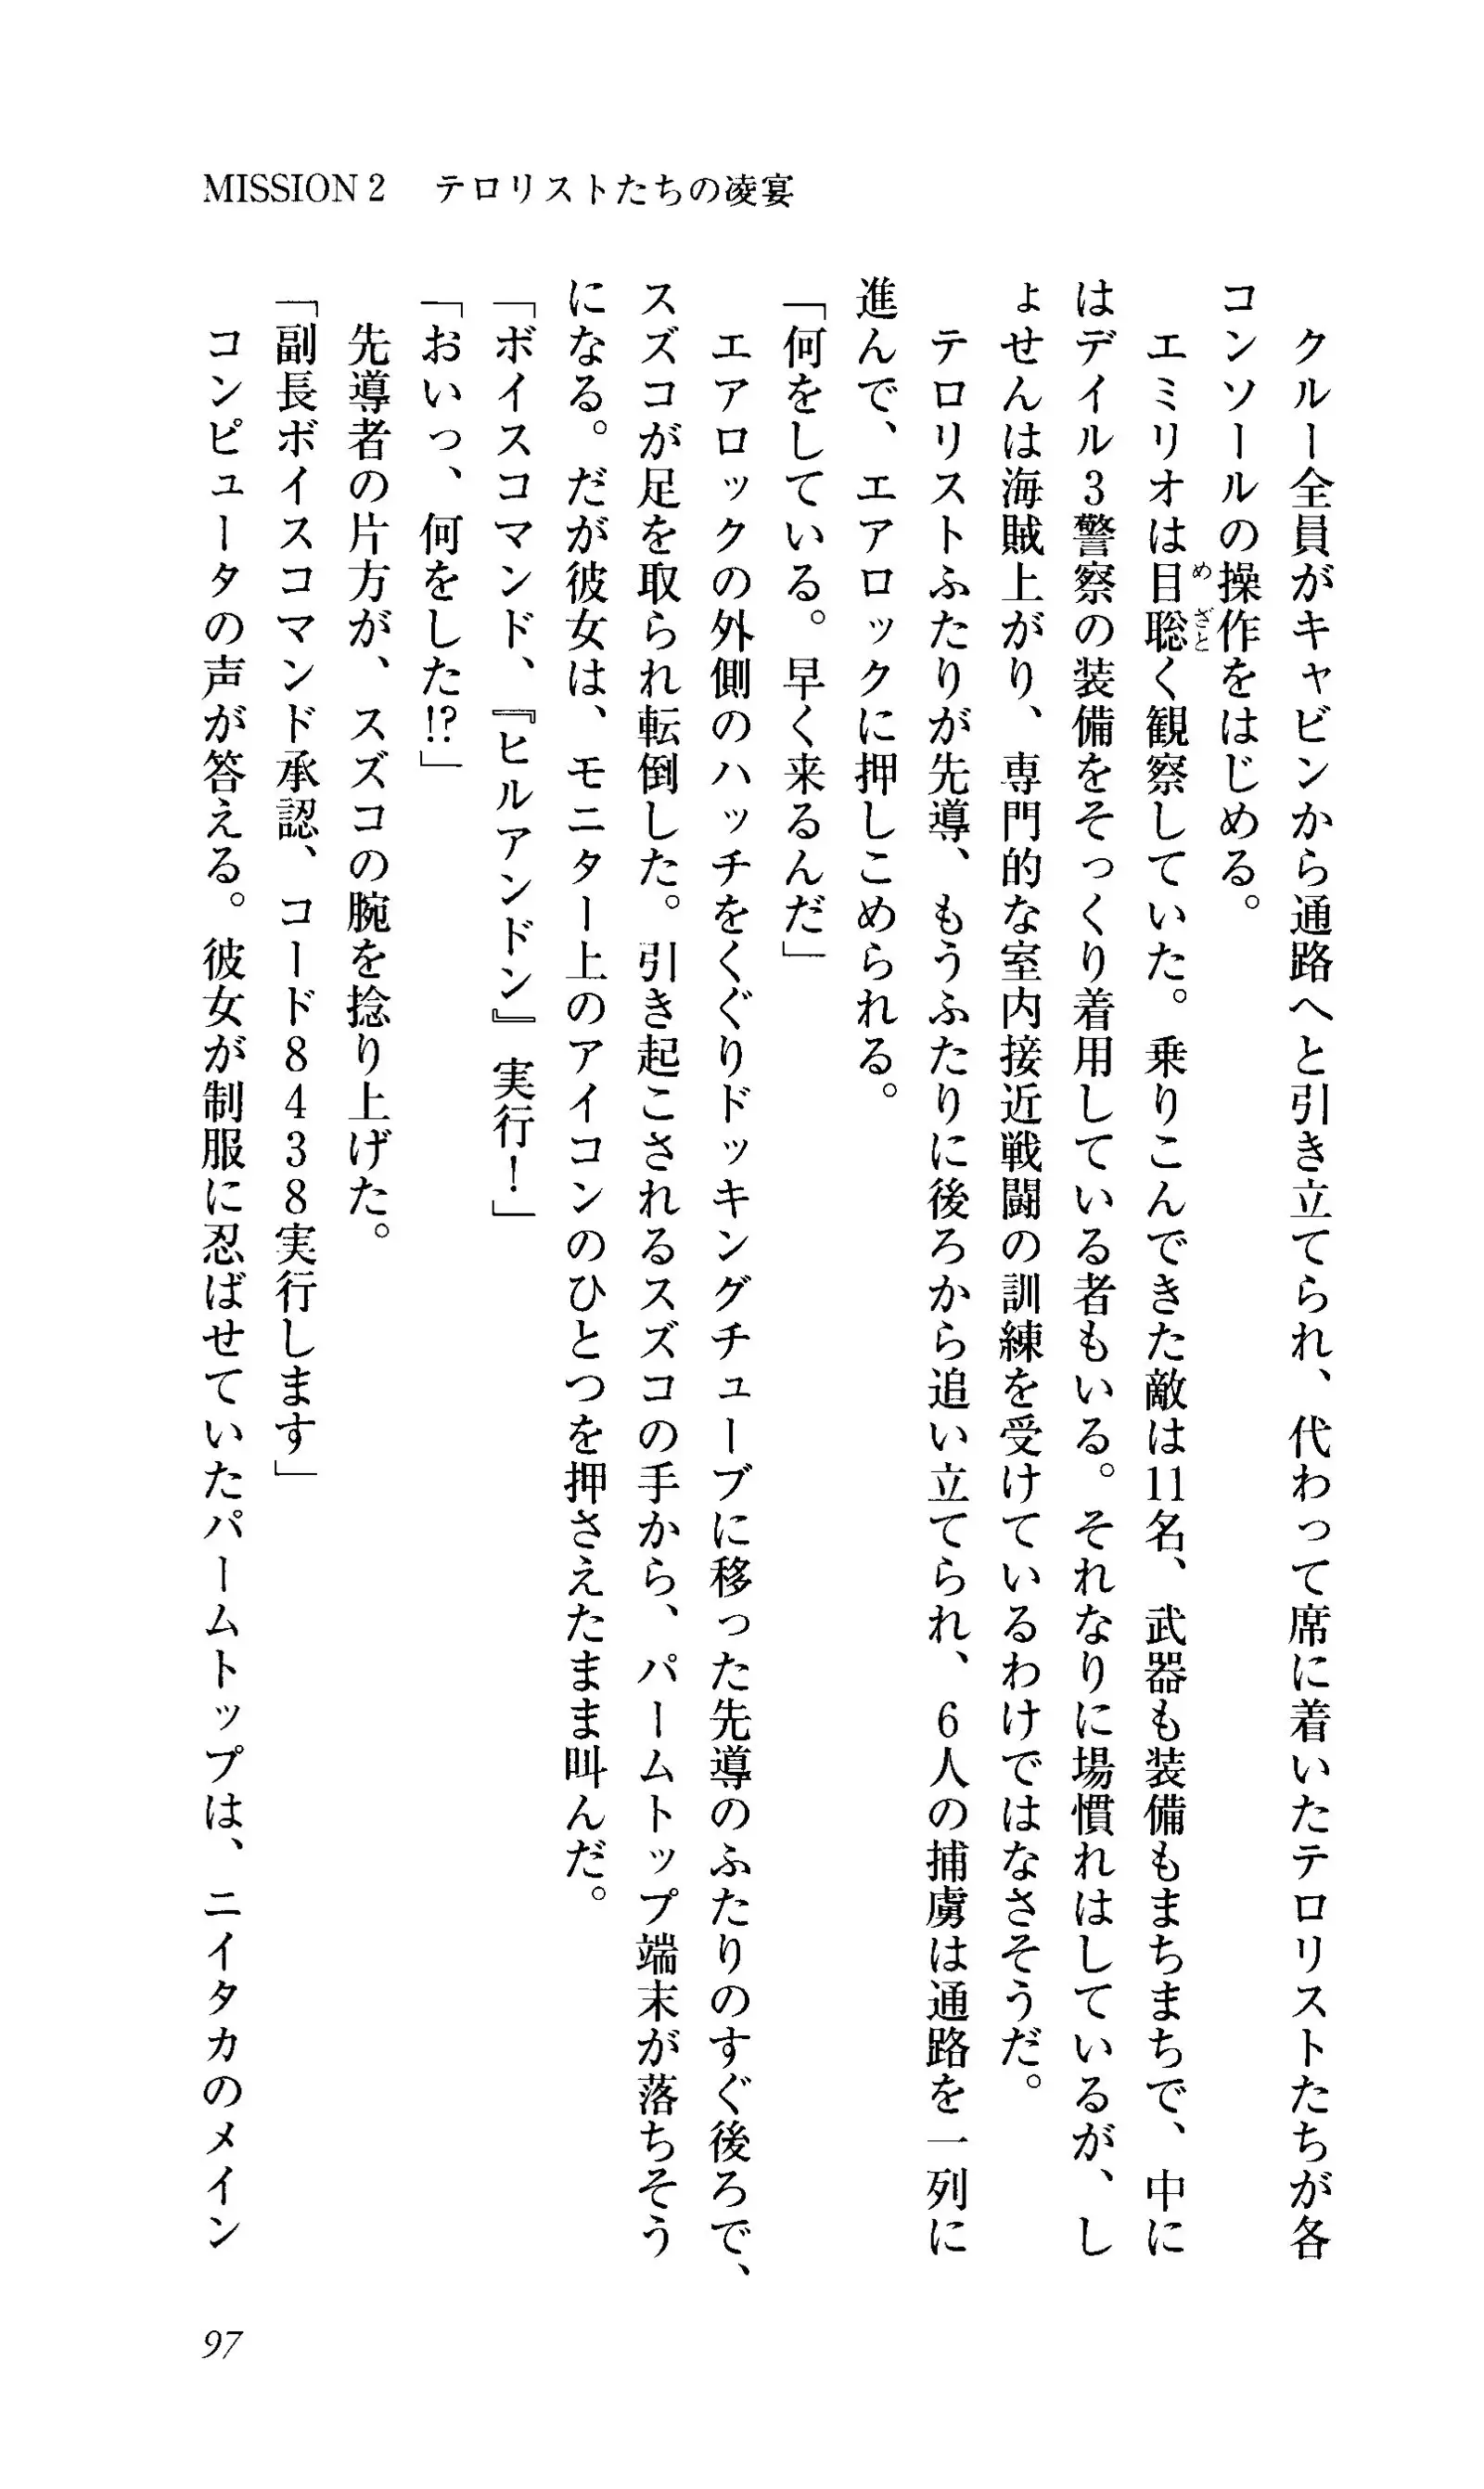 MISSION 2　テロリストたちの凌宴
　クルー全員がキャビンから通路へと引き立てられ、代わって席に着いたテロリストたちが各
コンソールの操作をはじめる。
　エミリオは目聡く観察していた。乗りこんできた敵は11名、武器も装備もまちまちで、中に
めざと
はデイル3警察の装備をそっくり着用している者もいる。それなりに場慣れはしているが、し
ょせんは海賊上がり、専門的な室内接近戦闘の訓練を受けているわけではなさそうだ。
　テロリストふたりが先導、もうふたりに後ろから追い立てられ、6人の捕虜は通路を一列に
進んで、エアロックに押しこめられる。
「何をしている。早く来るんだ」
　エアロックの外側のハッチをくぐりドッキングチューブに移った先導のふたりのすぐ後ろで、
スズコが足を取られ転倒した。引き起こされるスズコの手から、パームトップ端末が落ちそう
になる。だが彼女は、モニター上のアイコンのひとつを押さえたまま叫んだ。
「ボイスコマンド、『ヒルアンドン』実行！」
「おいっ、何をした!?」
　先導者の片方が、スズコの腕を捻り上げた。
「副長ボイスコマンド承認、コード8438実行します」
　コンピュータの声が答える。彼女が制服に忍ばせていたパームトップは、ニイタカのメイン
97